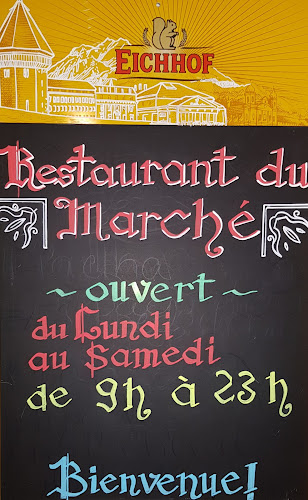 EICHHOF
Restaurant du
Marché
~ ouvert ~
du Lundi
au Samedi
de 9h à 23h
Bienvenue!